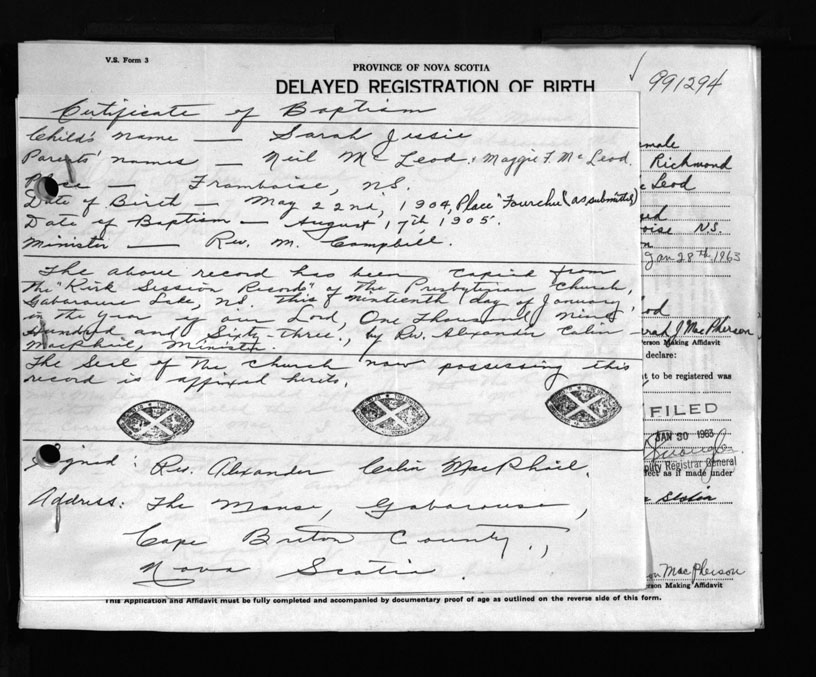 V.S. Form 3
PROVINCE OF NOVA SCOTIA
DELAYED REGISTRATION OF BIRTH
991294
Certificate of Baptism
Child's name — Sarah Jessie
Parents' names — Neil McLeod, Maggie F. McLeod.
Place — Framboise, N.S.
Date of Birth — May 22nd, 1904, Place "Fourchu" (as submitted)
Date of Baptism — August 17th, 1905.
Minister — Rev. M. Campbell.
The above record has been copied from
the "Kirk Session Records" of the Presbyterian Church,
Gabarouse Lake, N.S. this nineteenth day of January
in the year of our Lord, One Thousand Nine
Hundred and Sixty-three, by Rev. Alexander Calin
MacPhail, Minister.
The Seal of the Church now possessing this
record is affixed herits.
Signed: Rev. Alexander Calin MacPhail.
Address: The Manse, Gabarouse,
Cape Breton County,
Nova Scotia.
male
Richmond
Leod
oise N.S.
Jan 28th, 1963
od
rah J MacPherson
erson Making Affidavit
declare:
t to be registered was
FILED
JAN 30 1963
puty Registrar General
ect as if made under
Scotia
on MacPherson
Making Affidavit
This Application and Affidavit must be fully completed and accompanied by documentary proof of age as outlined on the reverse side of this form.